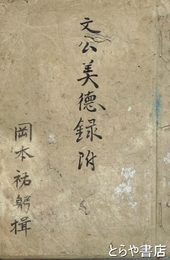 文公美德録附
岡本祐躬揖
© とらや書店